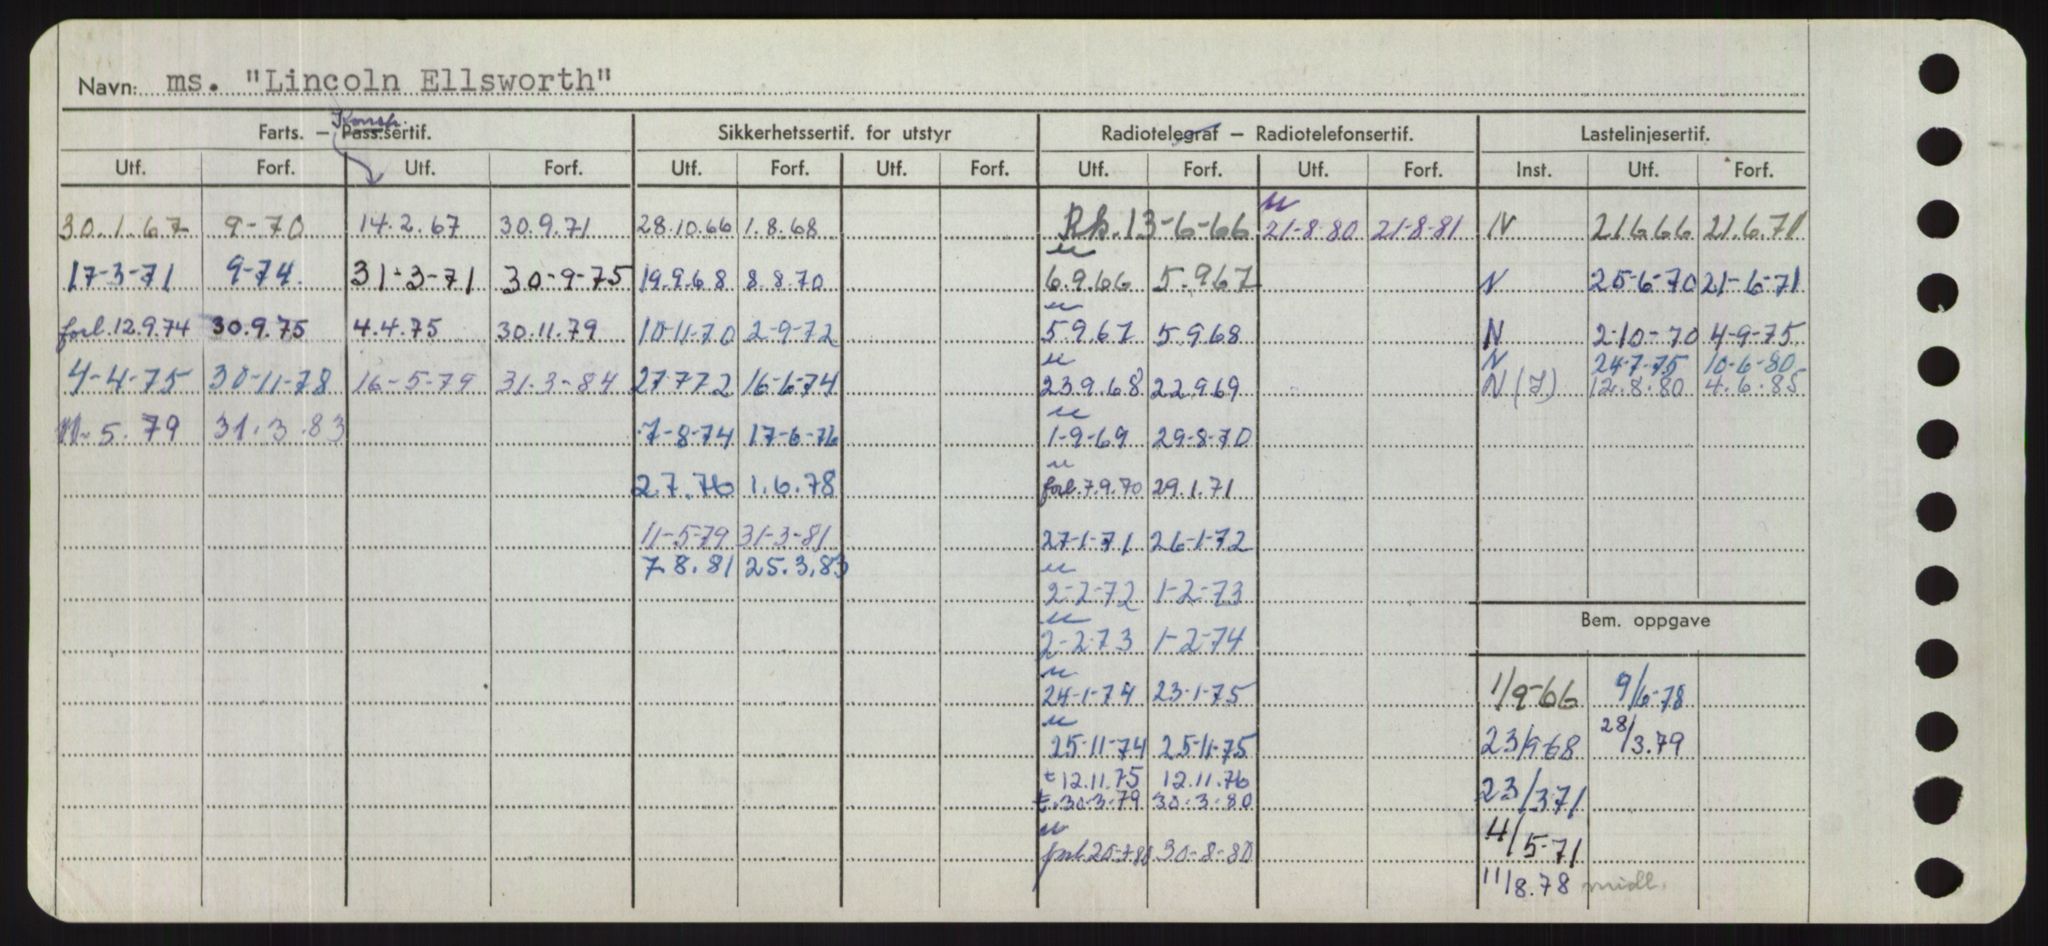 Navn: ms. "Lincoln Ellsworth"
Konstr.
Farts. — Pass.sertif. Sikkerhetssertif. for utstyr Radiotelegraf — Radiotelefonsertif. Lastelinjesertif.
Utf. Forf. Utf. Forf. Utf. Forf. Utf. Forf. Utf. Forf. Utf. Forf. Inst. Utf. Forf.
30.1.67 9-70 14.2.67 30.9.71 28.10.66 1.8.68 13-6-66 21-8-80 21-8-81 N 21666 21.6.71
17-3-71 9-74. 31-3-71 30-9-75 19.9.68 8.8.70 6.9.66 5.967 N 25-6-70 21-6-71
forl.12.9.74 30.9.75 4.4.75 30.11.79 10-11-70 2-9-72 59.67 5.968 N 2-10-70 4-9-75
N 24-7-75 10-6-80
4-4-75 30-11-78 16-5-79 31.3-84 27.772 16-6-74 239.68 22969 N (I) 12.8.80 4.6.85
5.79 31.3.83 7-8-74 17-6-76 1-9-69 29-8-70
2.7.76 1.6.78 forl.7.9.70 29.1.71
11-5-79 31-3-81 27-1-71 26-1-72
7.8.81 25.3.83
2-2-72 1-2-73
Bem. oppgave
2-2-73 1-2-74
24-1-74 23-1-75 1/9-66 9/6-78
25-11-74 25-11-75 23/9-68 28/3.79
t 12.11.75 12.11.76
t.30-3-79 30-3-80 23/3-71
forl. 30-8-80 4/5-71
11/8.78 midl.